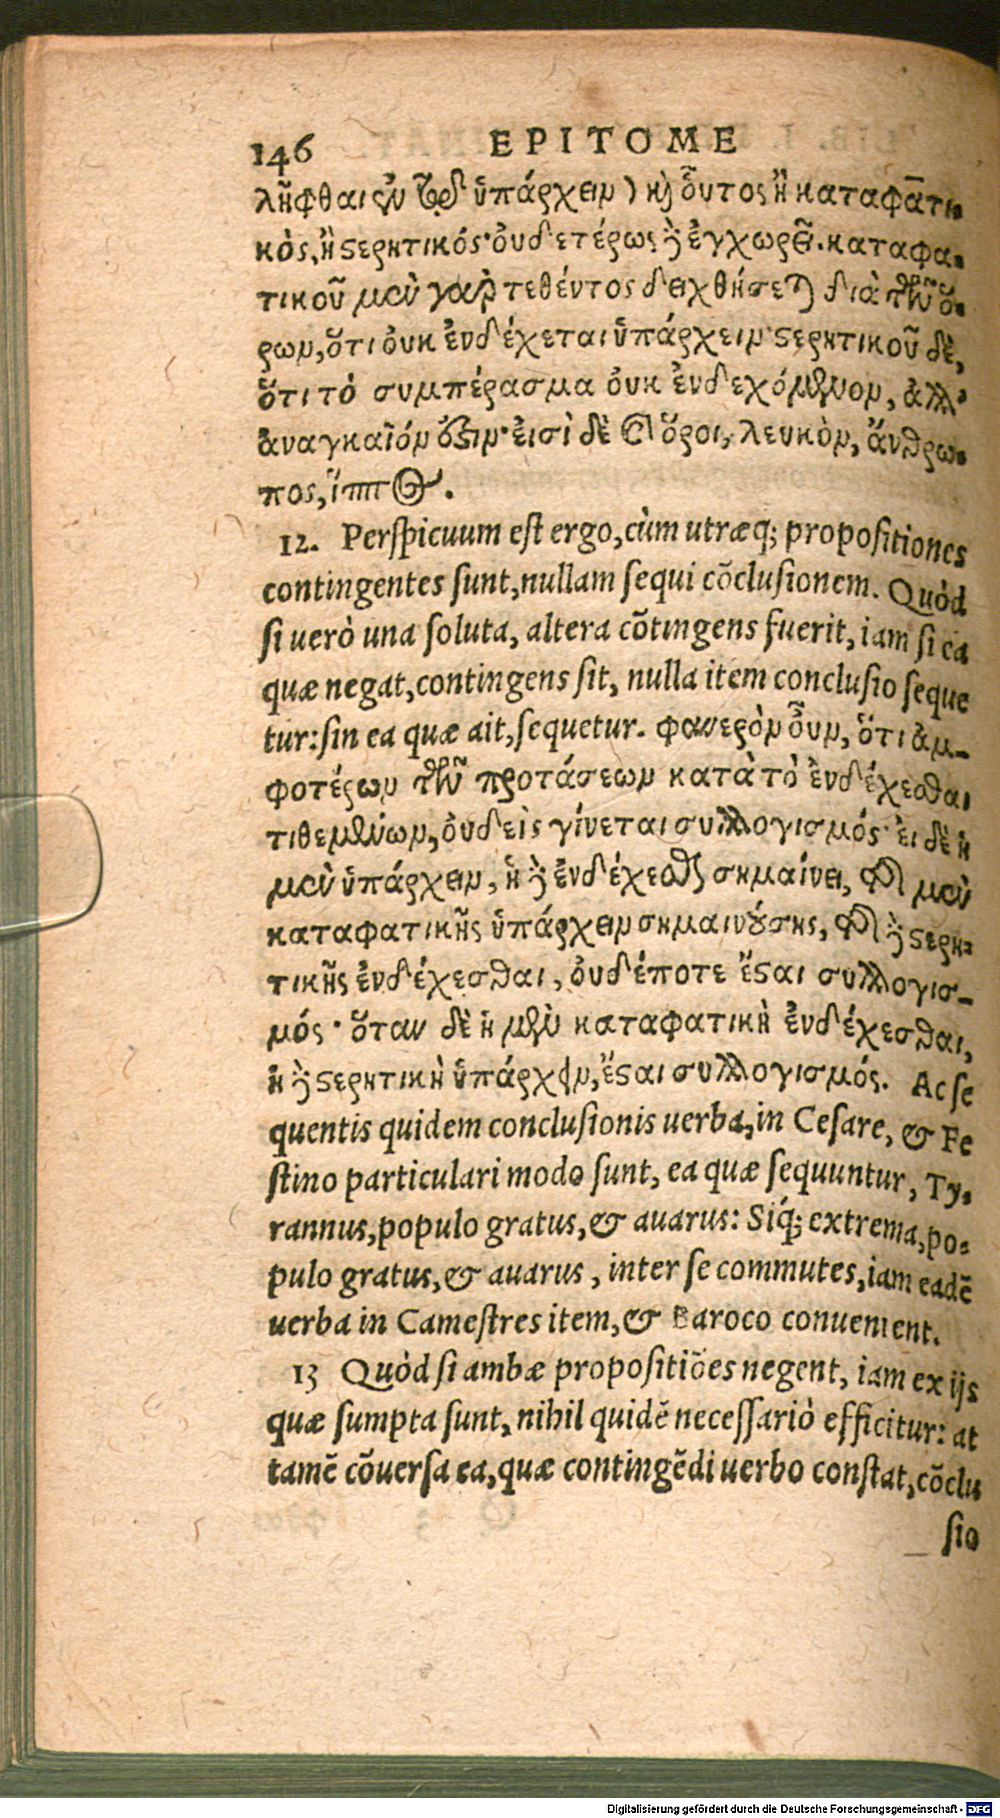 146 EPITOME
λῆφθαι ἐν τῷ ὑπάρχειν) καὶ οὗτος ἢ καταφατι-
κὸς, ἢ στερητικός· οὐδετέρως δὲ ἐγχωρεῖ. καταφα-
τικοῦ μὲν γὰρ τεθέντος δειχθήσεται διὰ τῶν ὅ-
ρων, ὅτι οὐκ ἐνδέχεται ὑπάρχειν· στερητικοῦ δὲ,
ὅτι τὸ συμπέρασμα οὐκ ἐνδεχόμενον, ἀλλ'
ἀναγκαῖόν ἐστιν· εἰσὶ δὲ οἱ ὅροι, λευκὸν, ἄνθρω-
πος, ἵππος.
12. Perspicuum est ergo, cùm utræq; propositiones
contingentes sunt, nullam sequi cõclusionem. Quòd
si uerò una soluta, altera cõtingens fuerit, iam si ea
quæ negat, contingens sit, nulla item conclusio seque
tur: sin ea quæ ait, sequetur. φανερὸν οὖν, ὅτι ἀμ-
φοτέρων τῶν προτάσεων κατὰ τὸ ἐνδέχεσθαι
τιθεμένων, οὐδεὶς γίνεται συλλογισμός· εἰ δὲ ἡ
μὲν ὑπάρχειν, ἡ δὲ ἐνδέχεσθαι σημαίνει, τῆς μὲν
καταφατικῆς ὑπάρχειν σημαινούσης, τῆς δὲ στερη-
τικῆς ἐνδέχεσθαι, οὐδέποτε ἔσται συλλογισ-
μός· ὅταν δὲ ἡ μὲν καταφατικὴ ἐνδέχεσθαι,
ἡ δὲ στερητικὴ ὑπάρχειν, ἔσται συλλογισμός. Ac se
quentis quidem conclusionis uerba, in Cesare, & Fe
stino particulari modo sunt, ea quæ sequuntur, Ty-
rannus, populo gratus, & auarus: Siq; extrema, po-
pulo gratus, & auarus, inter se commutes, iam eadē
uerba in Camestres item, & Baroco conuenient.
13 Quòd si ambæ propositiões negent, iam ex ijs
quæ sumpta sunt, nihil quidē necessariò efficitur: at
tamē cõuersa ea, quæ contingēdi uerbo constat, cõclu
sio
Digitalisierung gefördert durch die Deutsche Forschungsgemeinschaft - DFG